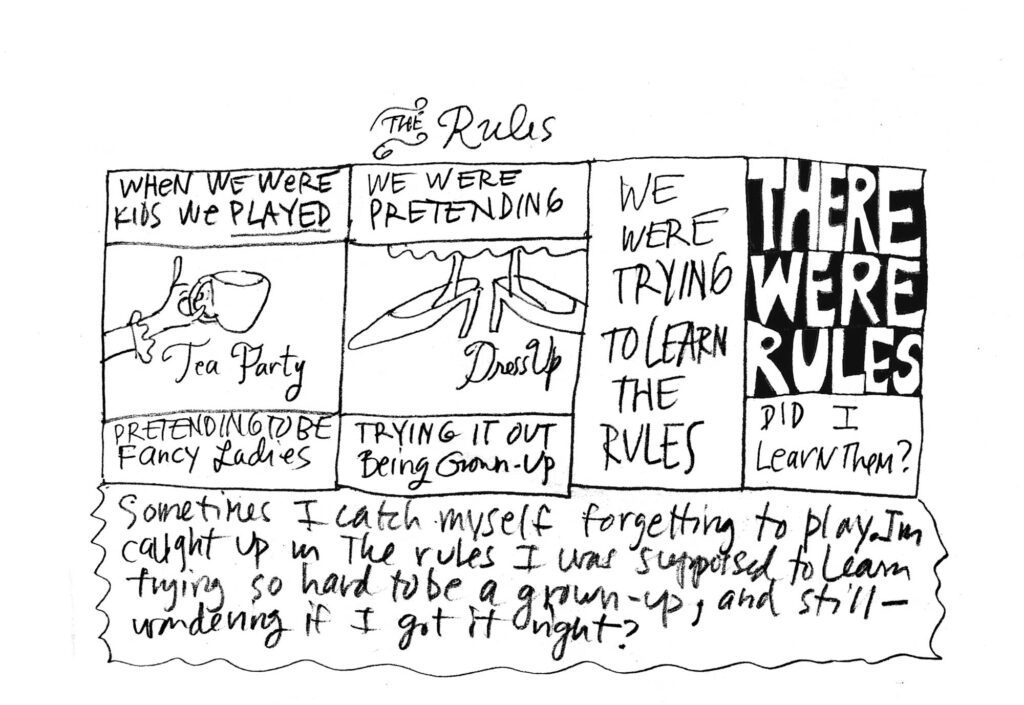 THE Rules
WHEN WE WERE
KIDS WE PLAYED
Tea Party
PRETENDING TO BE
Fancy Ladies
WE WERE
PRETENDING
Dress Up
TRYING IT OUT
Being Grown-Up
WE
WERE
TRYING
TO LEARN
THE
RULES
THERE
WERE
RULES
DID I
Learn Them?
Sometimes I catch myself forgetting to play. I'm
caught up in The rules I was supposed to learn
trying so hard to be a grown-up, and still—
wondering if I got it right?